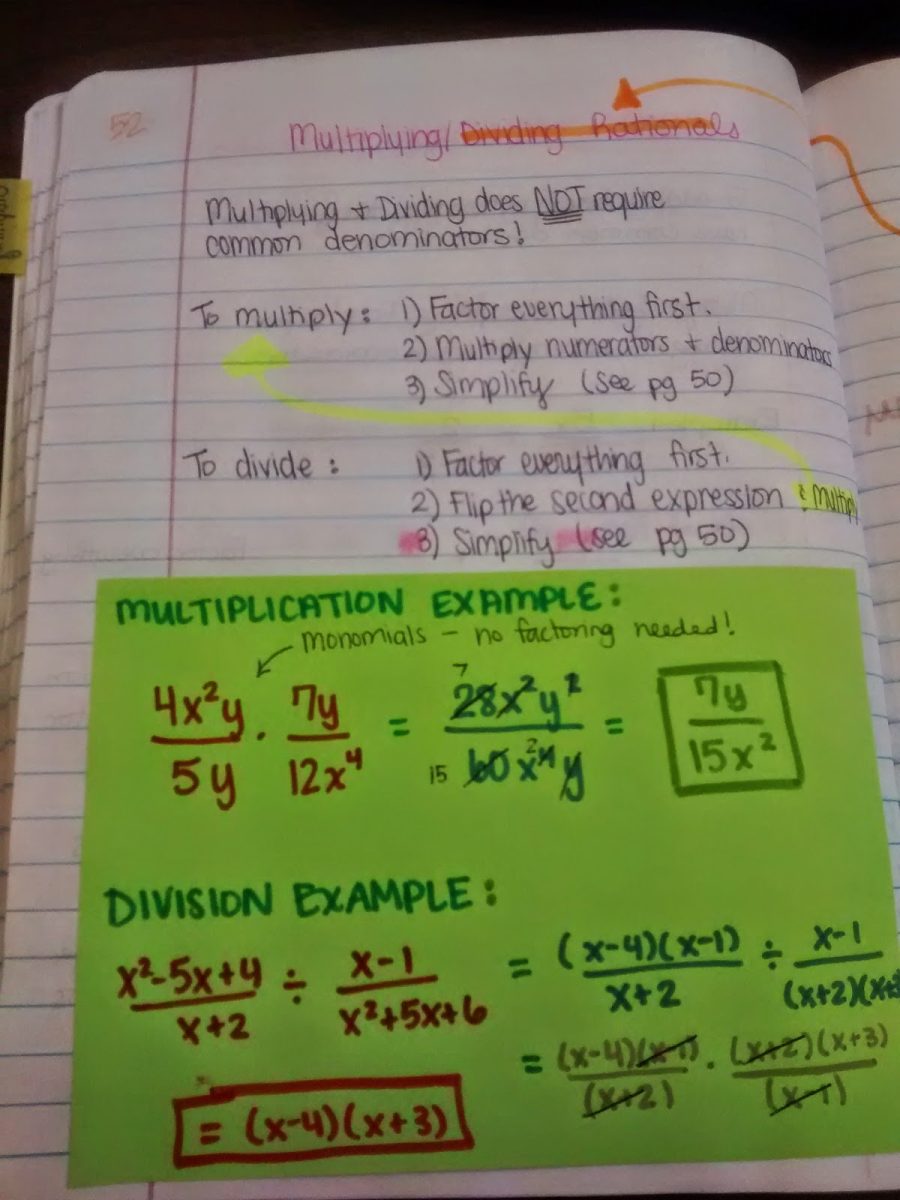 52
Multiplying/Dividing Rationals
Multiplying + Dividing does NOT require
common denominators!
To multiply: 1) Factor everything first.
2) Multiply numerators + denominators
3) Simplify (see pg 50)
To divide: 1) Factor everything first.
2) Flip the second expression & multiply
3) Simplify (see pg 50)
MULTIPLICATION EXAMPLE:
monomials - no factoring needed!
4x²y/5y · 7y/12x⁴ = 7 28x²y²/15 60x⁴y 2 = 7y/15x²
DIVISION EXAMPLE:
x²-5x+4/x+2 ÷ x-1/x²+5x+6 = (x-4)(x-1)/x+2 ÷ x-1/(x+2)(x+3
= (x-4)(x-1)/(x+2) · (x+2)(x+3)/(x-1)
= (x-4)(x+3)